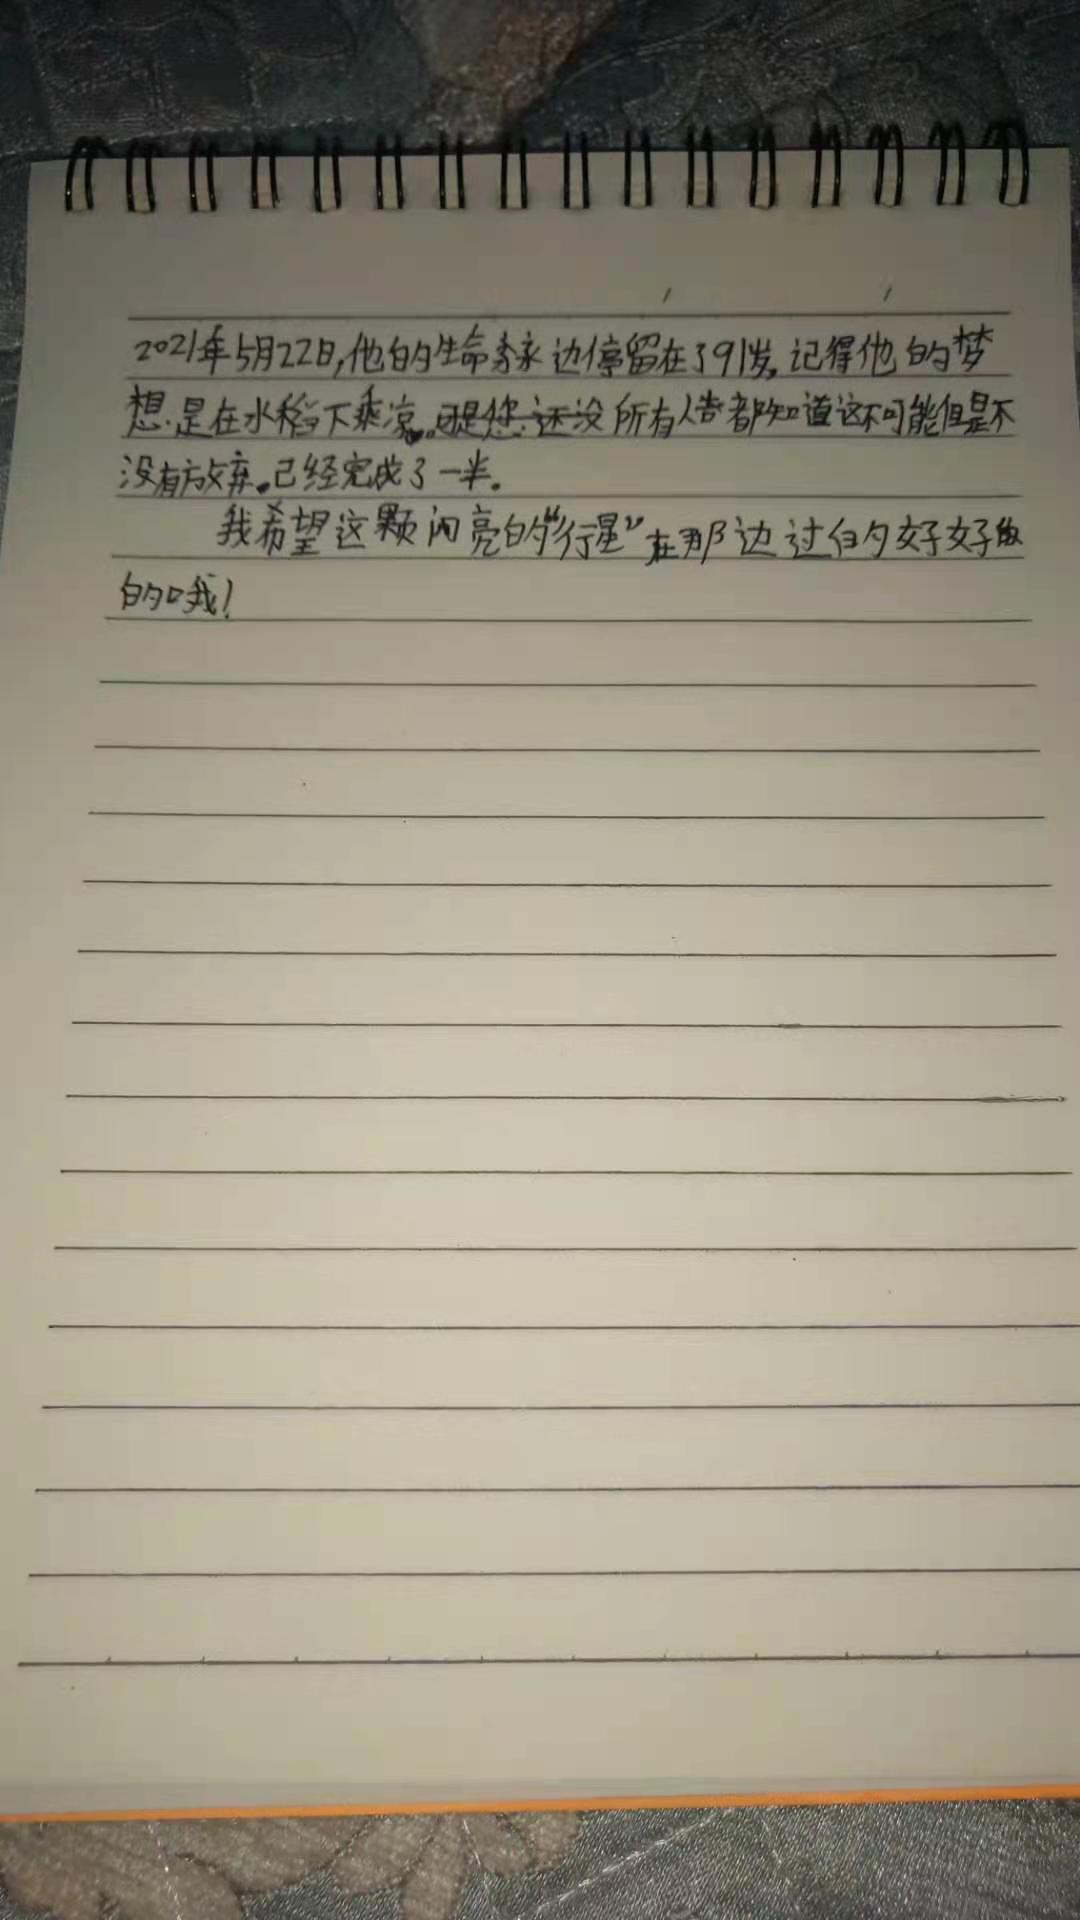 2021年5月22日,他的生命永边停留在了91岁。记得他的梦
想是在水稻下乘凉。可是您还没所有人告都知道这不可能但是不
没有放弃。已经完成了一半。
我希望这颗闪亮的“行星”在那边过的好好
的哦!